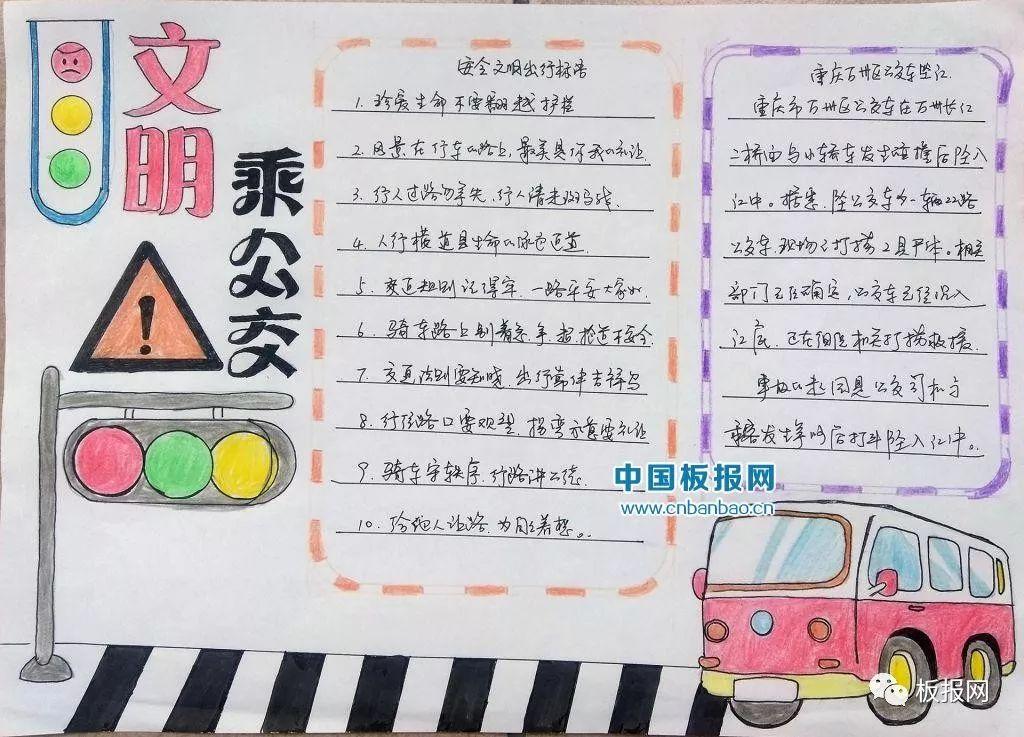 文明
乘公交
安全文明出行标语
1. 珍爱生命不要翻越护栏
2. 风景在行车的路上,最美是你我的礼让
3. 行人过路勿争先,行人请走斑马线.
4. 人行横道是生命的绿色通道
5. 交通规则记得牢.一路平安大家好.
6. 骑车路上别着急.争、超、抢道不安全.
7. 交通法则要知晓 出行需伴吉祥鸟
8. 行经路口要观望,拐弯示意要礼让
9. 骑车守秩序.行路讲公德.
10. 给他人让路.为自己着想。
重庆万州区公交车坠江.
重庆市万州区公交车在万州长江
二桥面与小轿车发生碰撞后坠入
江中。据悉.坠公交为一辆22路
公交车.现场已打捞2具尸体。相关
部门已经确定,公交车已经沉入
江底.已在组织相关打捞救援.
事故的起因是公交司机与
乘客发生争吵后打斗坠入江中。
中国板报网
www.cnbanbao.cn
板报网